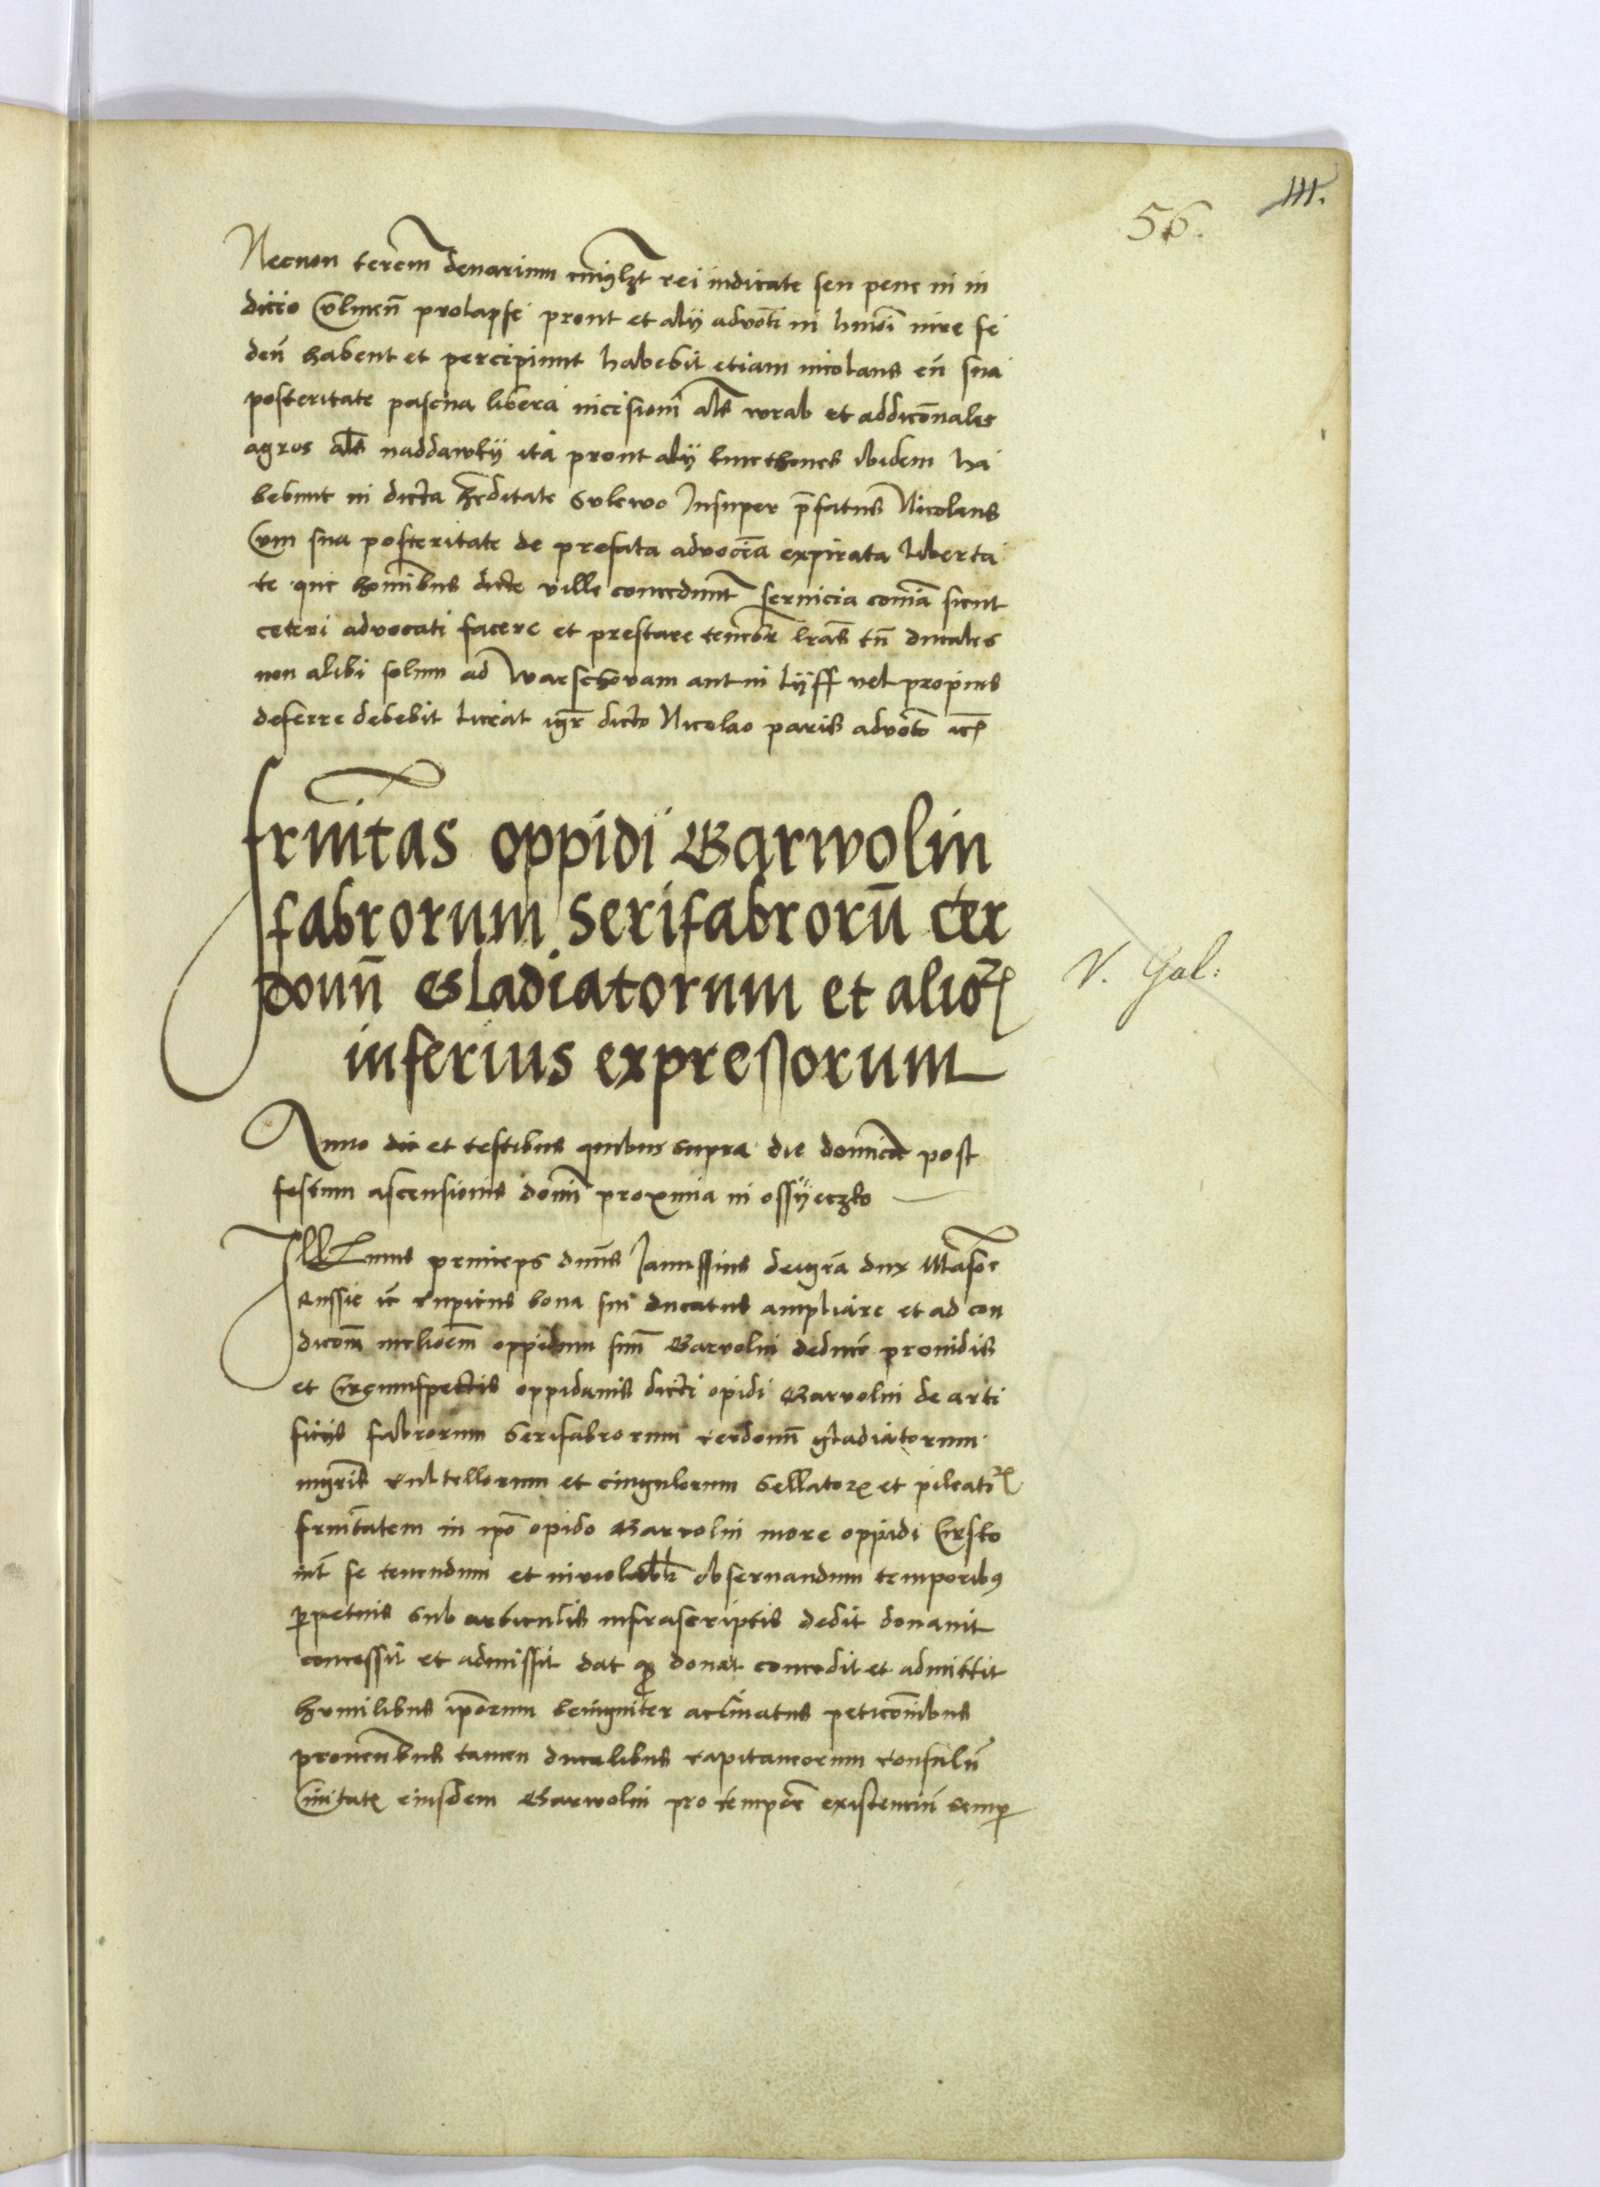 56. III.
Necnon tercm̄ denarium rei iudicate seu pene in iu
dicio prolapse prout et alij advoti in hmōi iure se
den̄ habent et percipiunt habebit etiam nicolaus cū sua
posteritate pascua libera incisionē al̄s wrab et addiconales
agros al̄s naddawky ita prout alij kmethones ibidem ha
bebunt in dicta h̄editate Sulewo Insuper p̄fatus Nicolaus
Cum sua posteritate de prefata advocc̄ia expirata liberta
te que hominibus dicte ville conceduntur servicia com̄ia sicut
ceteri advocati facere et prestare tenebr̄ l̄ras tn̄ ducales
non alibi solum ad Warschovam aut in Lijff vel propius
deferre debebit liceat igr̄ dicto Nicolao paris advocto ec̄
frnitas oppidi Garwolin
fabrorum Serifabrorū cer
donū Gladiatorum et alioꝝ
inferius expressorum
V. Gal:
Anno die et testibus quibus supra die dominica post
festum ascensionis domī proxima in ossijeczko
princeps dn̄us Janussius dei grā dux Masoe
Russie ec̄ cupiens bona sui ducatus ampliare et ad con
dicom̄ melioem̄ oppidum suū Garvolin deducē providis
et Circumspectis oppidanis dicti opidi Garvolin de arti
ficijs fabrorum Serifabrorum cerdonū gladiatorum
cultellorum et cingulorum Sellatoꝝ et pileatiꝝ
frnitatem in ip̄o opido Garvolin more oppidi Cirsko
int̄ se tenendum et inviolabilr̄ observandum temporibꝰ
ꝑpetuis sub articulis infrascriptis dedit donauit
concessit et admissit dat ꝙ donat concedit et admittit
humilibus ip̄orum benigniter aclinatus peticonibus
prouen̄tibus tamen ducalibus capitaneorum consulū
Civitatꝭ eiusdem Garwolin pro tempore existenciū semꝑ